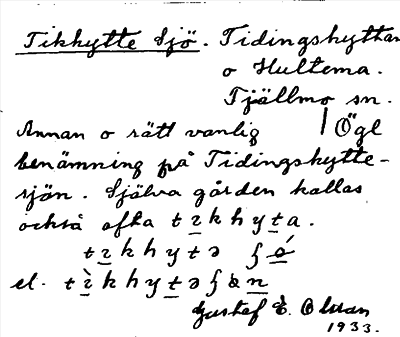 Tikhytte Sjö. Tidingshyttan
o Hultema.
Tjällmo sn.
Annan o rätt vanlig | Ögl
benämning på Tidingshytte-
sjön. Själva gården kallas
också ofta t ɪ k h y t a.
t ɪ k h y t ə ʃ ǿ
el. t ɪ̀ k h y t ə ʃ ö n
Gustaf E. Olsson
1933.